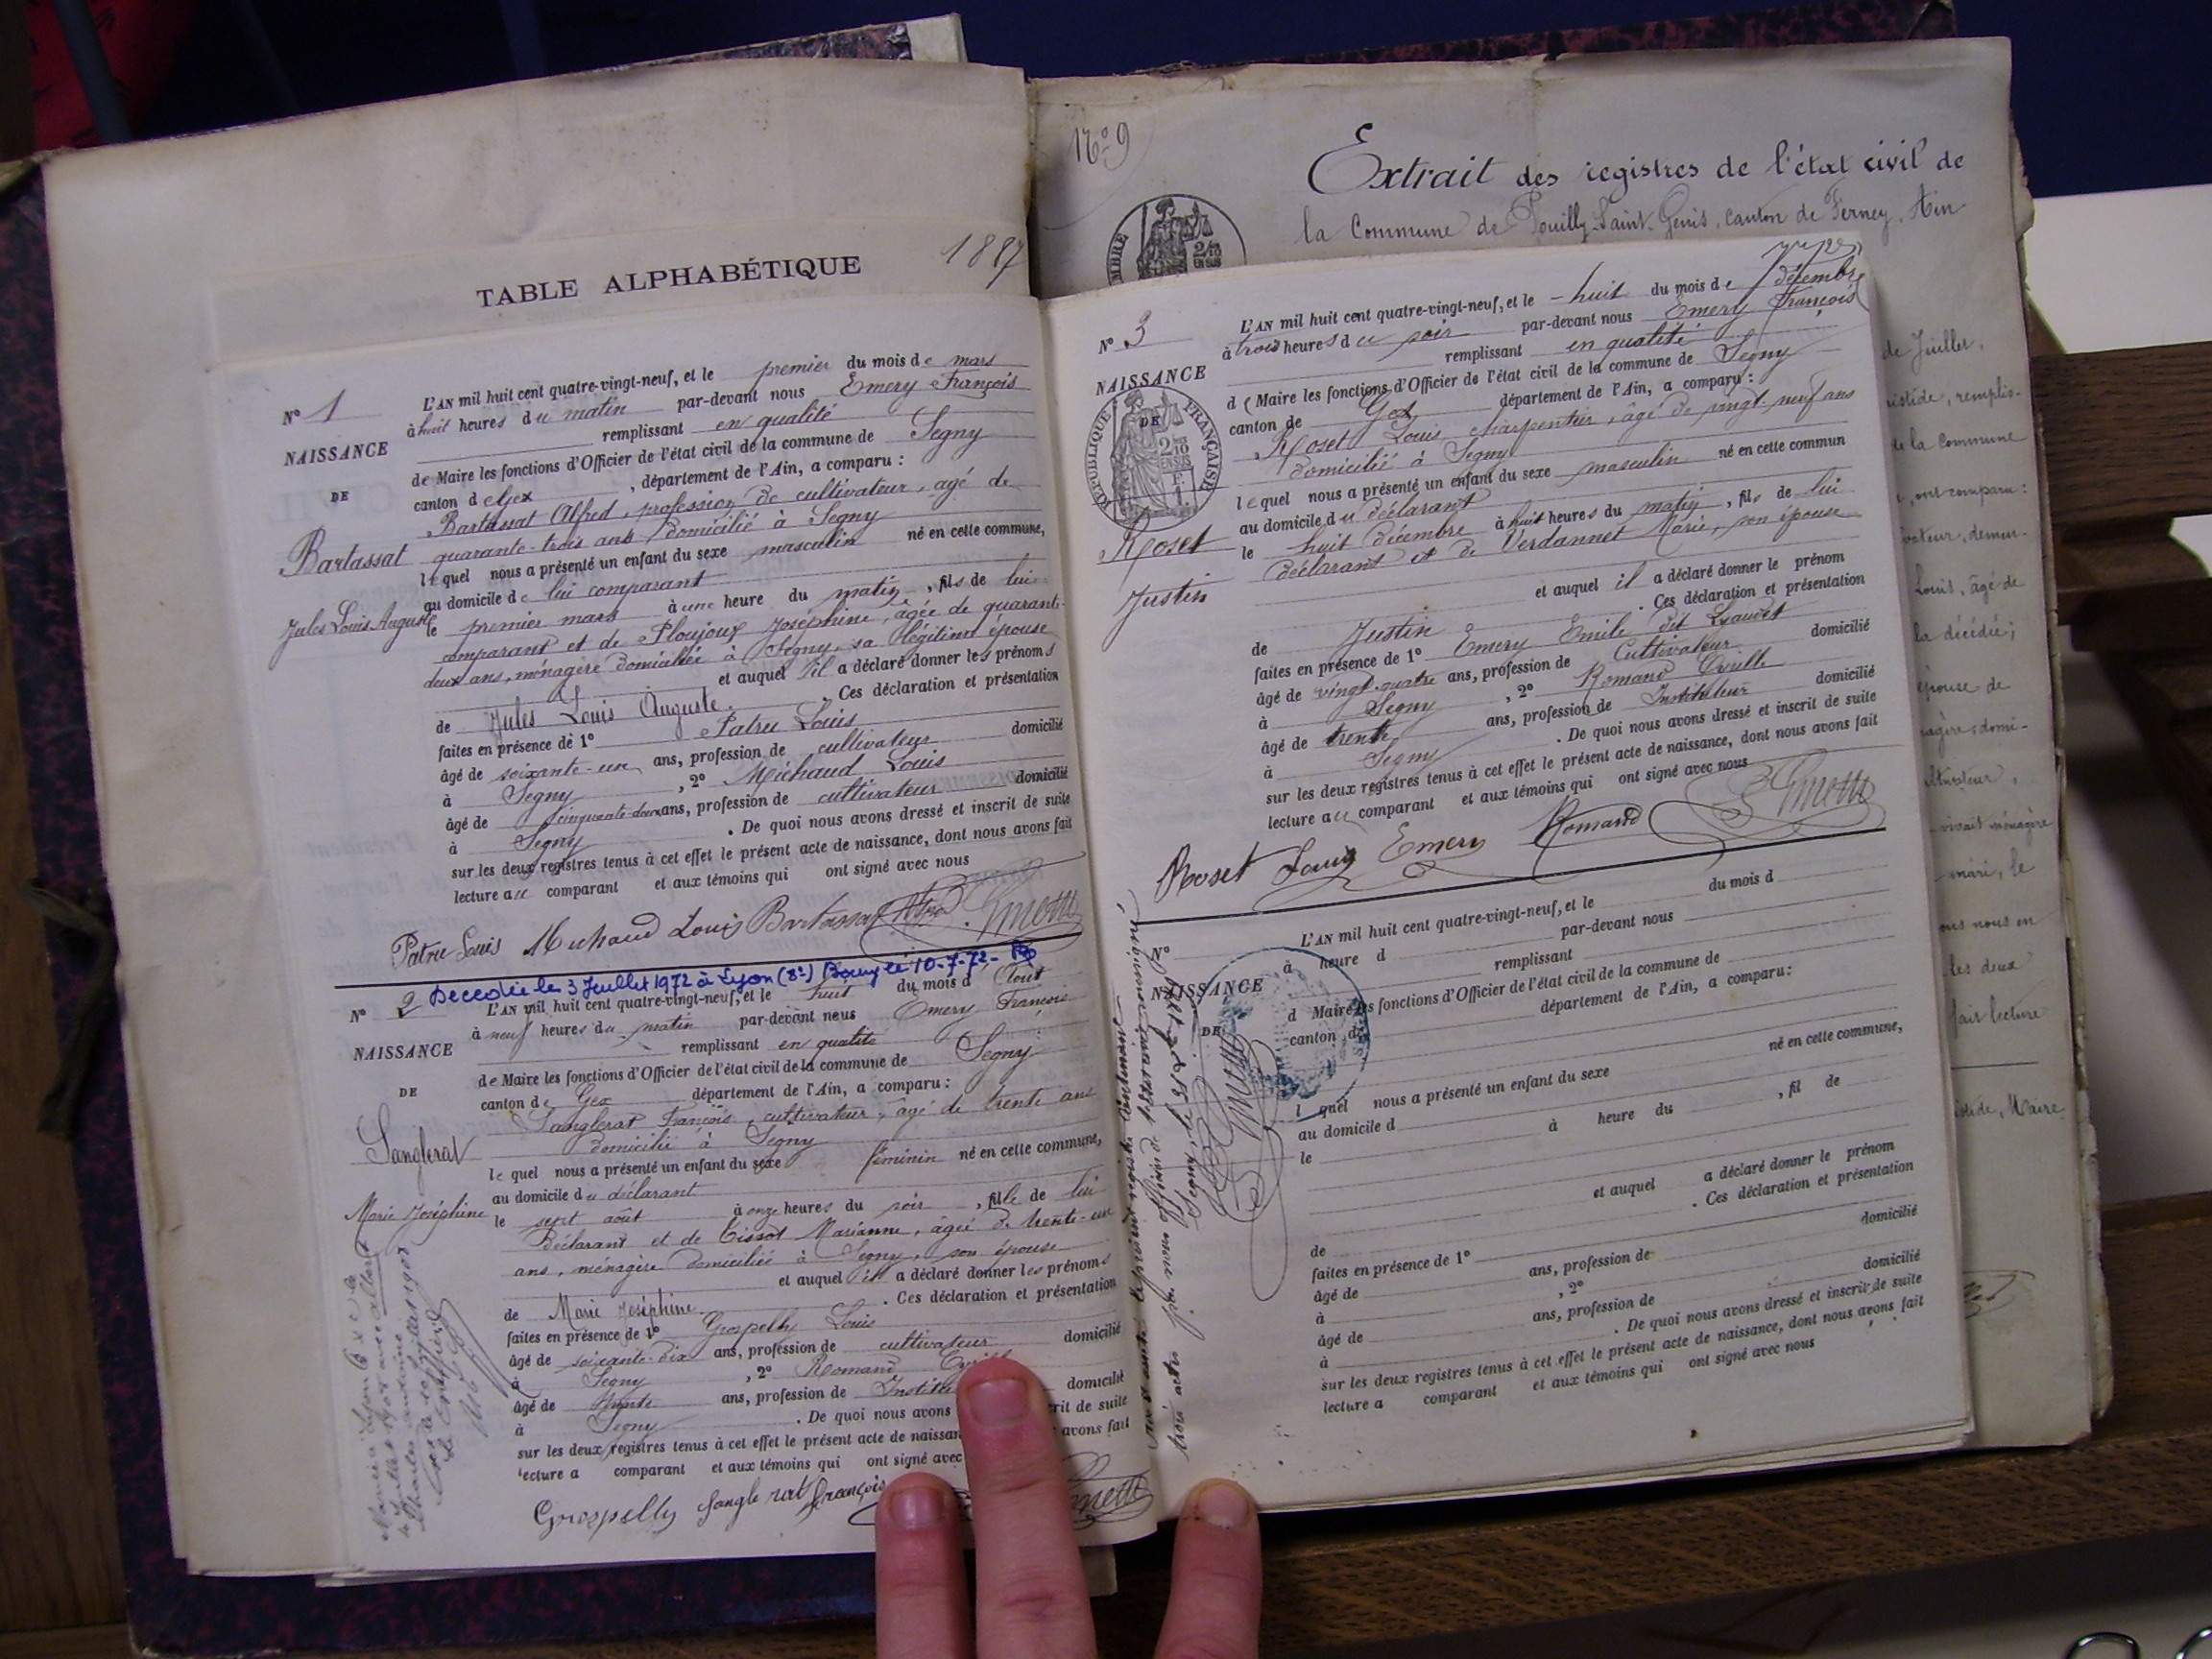 TABLE ALPHABÉTIQUE
1887
N° 1
NAISSANCE
DE
Bartassat
Jules Louis Auguste
L'AN mil huit cent quatre-vingt-neuf, et le premier du mois de mars
à huit heures du matin par-devant nous Emery François
remplissant en qualité
de Maire les fonctions d'Officier de l'état civil de la commune de Segny
canton de Gex, département de l'Ain, a comparu :
Bartassat Alfred, profession de cultivateur, agé de
quarante-trois ans domicilié à Segny
lequel nous a présenté un enfant du sexe masculin né en cette commune,
au domicile de lui comparant
le premier mars à une heure du matin, fils de lui
comparant et de Ploujoux Joséphine, âgée de quarante-
deux ans, ménagère domiciliée à Segny, sa légitime épouse
et auquel il a déclaré donner les prénoms
de Jules Louis Auguste. Ces déclaration et présentation
faites en présence de 1° Patru Louis
âgé de soixante-un ans, profession de cultivateur domicilié
à Segny, 2° Michaud Louis
âgé de cinquante-deux ans, profession de cultivateur domicilié
à Segny. De quoi nous avons dressé et inscrit de suite
sur les deux registres tenus à cet effet le présent acte de naissance, dont nous avons fait
lecture au comparant et aux témoins qui ont signé avec nous
Patru Louis Michaud Louis Bartassat
Decedée le 3 Juillet 1972 à Lyon (8e) Bourg le 10-7-72-
N° 2
NAISSANCE
DE
Sanglerat
Marie Joséphine
L'AN mil huit cent quatre-vingt-neuf, et le huit du mois d'Aout
à neuf heures du matin par-devant nous Emery François
remplissant en qualité
de Maire les fonctions d'Officier de l'état civil de la commune de Segny
canton de Gex département de l'Ain, a comparu :
Sanglerat François, cultivateur, âgé de trente ans
domicilié à Segny
lequel nous a présenté un enfant du sexe féminin né en cette commune,
au domicile du déclarant
le sept août à onze heures du soir, fille de lui
Déclarant et de Tissot Marianne, âgée de trente-un
ans, ménagère domiciliée à Segny, son épouse
et auquel il a déclaré donner les prénoms
de Marie Joséphine. Ces déclaration et présentation
faites en présence de 1° Grospelly Louis
âgé de soixante-dix ans, profession de cultivateur domicilié
à Segny, 2° Romand
âgé de trente ans, profession de domicilié
à Segny. De quoi nous avons crit de suite
sur les deux registres tenus à cet effet le présent acte de naissan avons fait
lecture a comparant et aux témoins qui ont signé avec
Grospelly Sanglerat François
N° 9
Extrait des registres de l'état civil de
la Commune de Pouilly-Saint-Genis, canton de Ferney, Ain
N° 3
NAISSANCE
DE
RÉPUBLIQUE FRANÇAISE
Roset
Justin
L'AN mil huit cent quatre-vingt-neuf, et le huit du mois de décembre
à trois heures du soir par-devant nous Emery François
remplissant en qualité
de Maire les fonctions d'Officier de l'état civil de la commune de Segny
canton de Gex département de l'Ain, a comparu :
Roset Louis charpentier, âgé de vingt-neuf ans
domicilié à Segny
lequel nous a présenté un enfant du sexe masculin né en cette commun
au domicile du déclarant
le huit décembre à huit heures du matin, fils de lui
déclarant et de Verdannet Marie, son épouse
et auquel il a déclaré donner le prénom
de Justin. Ces déclaration et présentation
faites en présence de 1° Emery Emile dit Lyaudet
âgé de vingt-quatre ans, profession de Cultivateur domicilié
à Segny, 2° Romand
âgé de trente ans, profession de Instituteur domicilié
à Segny. De quoi nous avons dressé et inscrit de suite
sur les deux registres tenus à cet effet le présent acte de naissance, dont nous avons fait
lecture au comparant et aux témoins qui ont signé avec nous
Roset Louis Emery Romand
N°
NAISSANCE
DE
L'AN mil huit cent quatre-vingt-neuf, et le du mois d
à heure d par-devant nous
remplissant
d Maire les fonctions d'Officier de l'état civil de la commune de
canton de département de l'Ain, a comparu :
l quel nous a présenté un enfant du sexe né en cette commune,
au domicile d
le à heure du , fil de
et auquel a déclaré donner le prénom
de . Ces déclaration et présentation
faites en présence de 1°
âgé de ans, profession de domicilié
à , 2°
âgé de ans, profession de domicilié
à . De quoi nous avons dressé et inscrit de suite
sur les deux registres tenus à cet effet le présent acte de naissance, dont nous avons fait
lecture a comparant et aux témoins qui ont signé avec nous
de Juillet,
istide, remplis-
de la Commune
, ont comparu :
vateur, demeu-
Louis, âgé de
la décédée ;
épouse de
agère domi-
vivait ménagère
mari, le
ous nous en
les deux
fait lecture
istide, Maire